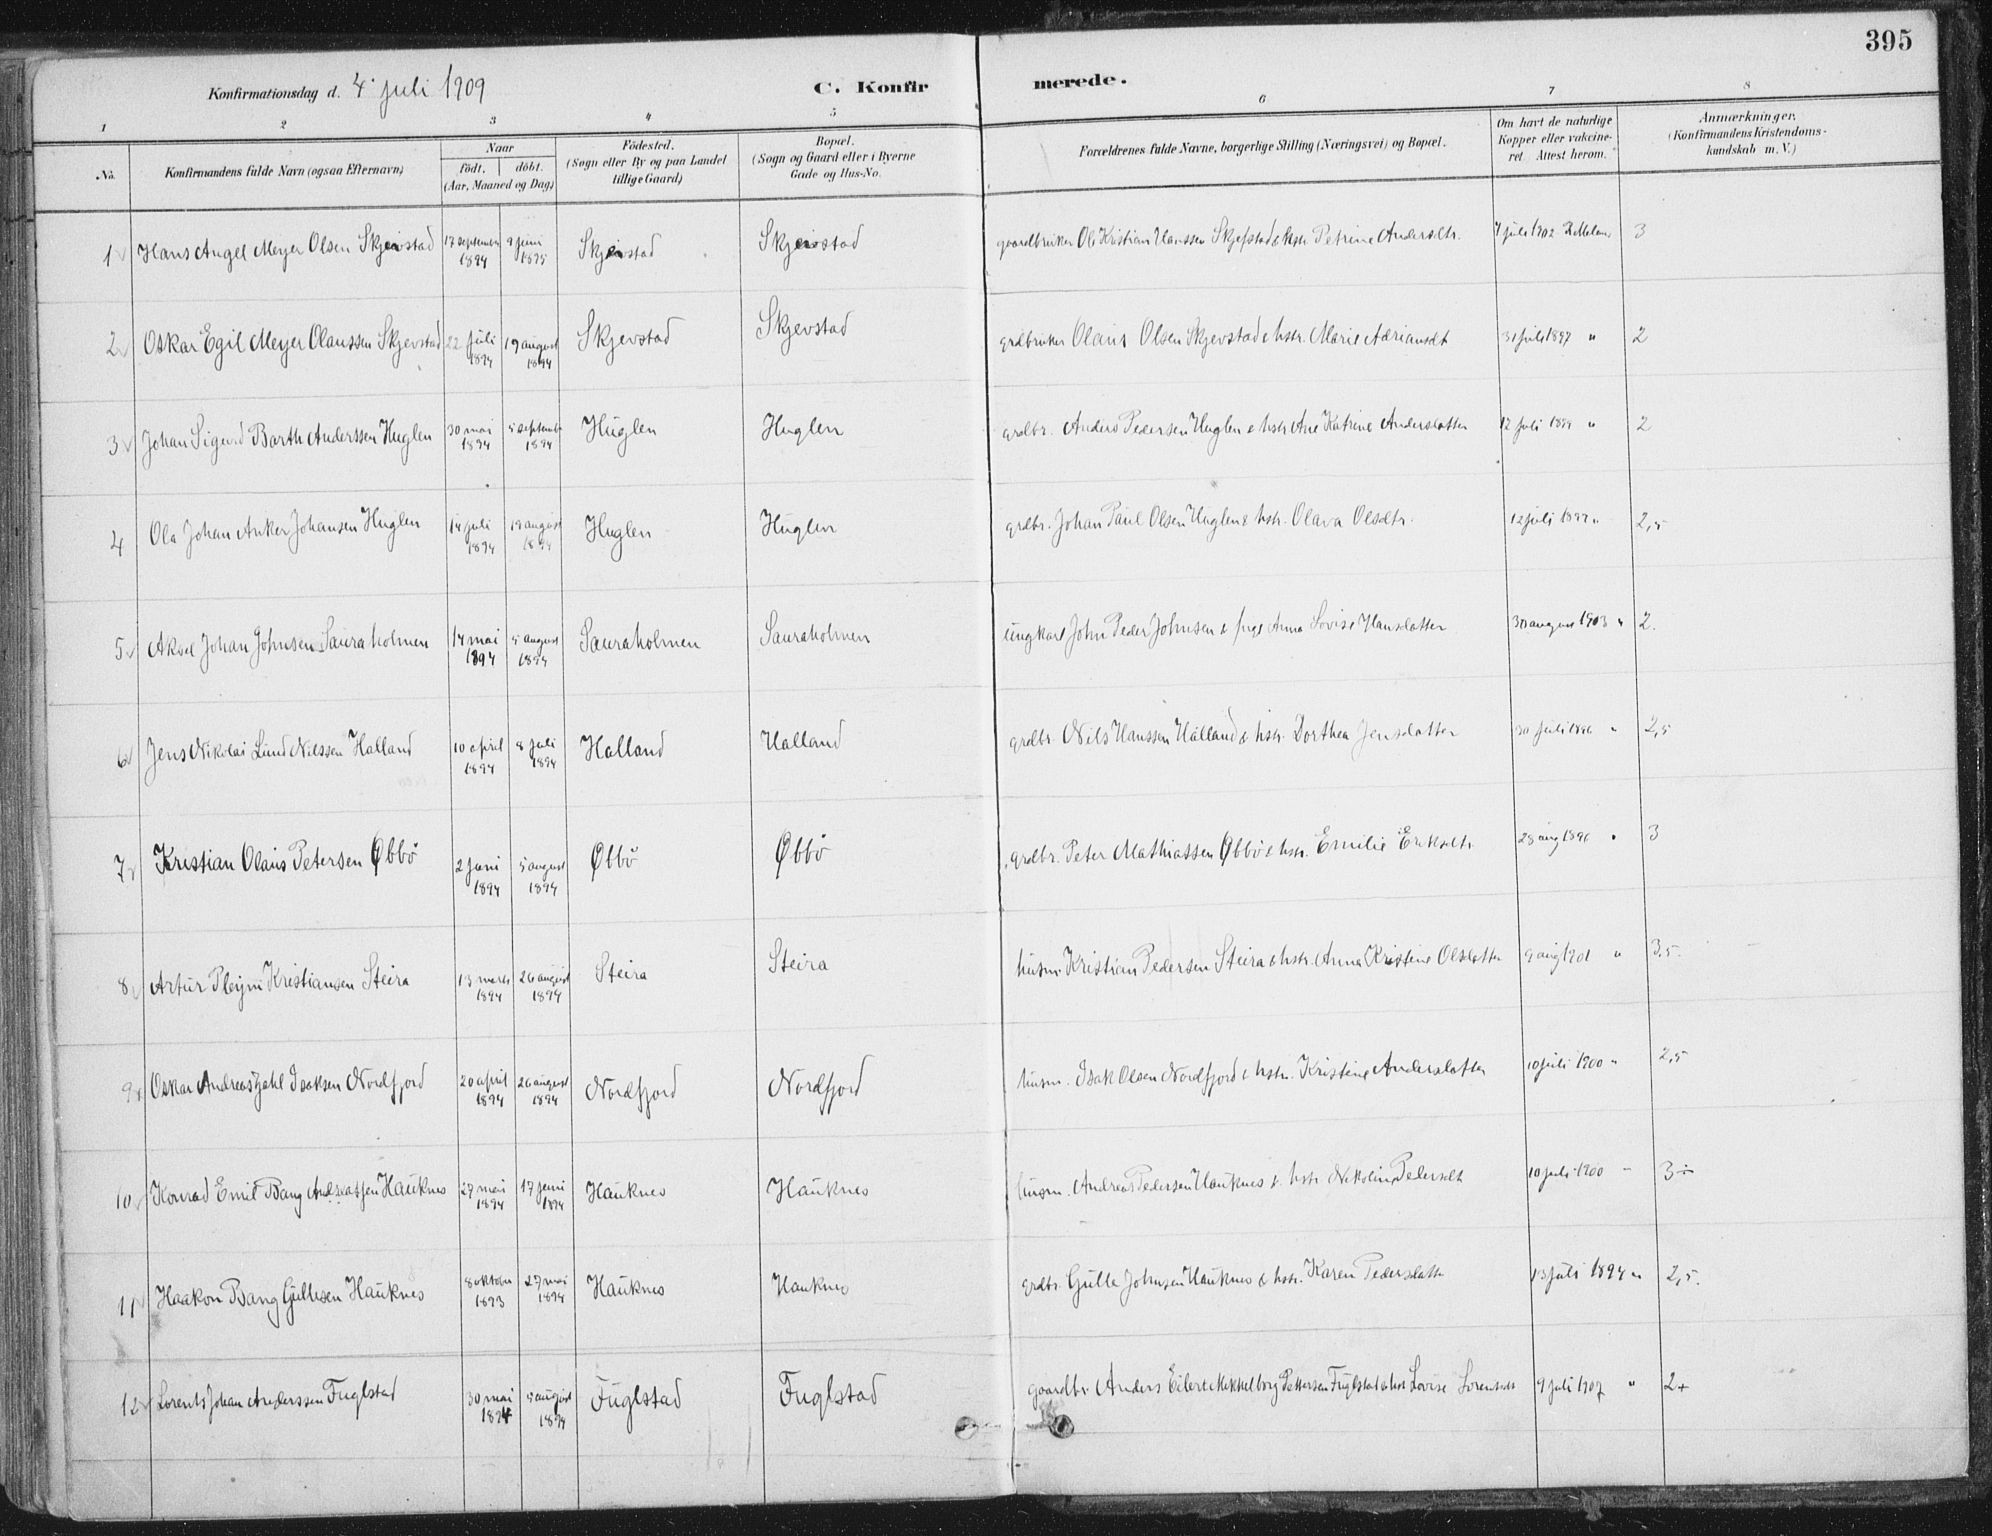 395
Konfirmationsdag d. 4. juli 1909
C. Konfirmerede.
1 2 3 4 5 6 7 8
No. Konfirmandens fulde Navn (ogsaa Efternavn)
Naar
födt. döbt.
(Aar, Maaned og Dag)
Födested.
(Sogn eller By og paa Landet
tillige Gaard)
Bopæl.
(Sogn og Gaard eller i Byerne
Gade og Hus-No.
Forældrenes fulde Navne, borgerlige Stilling (Næringsvei) og Bopæl.
Om havt de naturlige
Kopper eller vakcine-
ret. Attest herom.
Anmærkninger.
(Konfirmandens Kristendoms-
kundskab m. V.)
1 Hans Angel Meyer Olsen Skjevstad 17 september 1894 9 juni 1895 Skjevstad Skjevstad gaardbruker Ole Kristian Hanssen Skjefstad & hstr. Petrine Andersdtr. 7 juli 1902 3
2 Oskar Egil Meyer Olaussen Skjevstad 22 juli 1894 19 august 1894 Skjevstad Skjevstad grdbruker Olaus Olsen Skjevstad & hstr. Marie Adriansdt 31 juli 1897 " 2
3 Johan Sigurd Barth Anderssen Huglen 30 mai 1894 5 septembr 1894 Huglen Huglen grdbr. Anders Pedersen Huglen & hstr Ane Katrine Andersdatter 12 juli 1899 " 2
4 Ola Johan Anker Johansen Huglen 14 juli 1894 19 august 1894 Huglen Huglen grdbr. Johan Paul Olsen Huglen & hstr. Olava Olsdtr. 12 juli 1899 " 2,5
5 Aksel Johan Johnsen Sauraholmen 14 mai 1894 5 august 1894 Sauraholmen Sauraholmen ungkarl John Peder Johnsen & pige Anna Lovise Hansdatter 30 august 1903 " 2.
6 Jens Nikolai Lund Nilssen Halland 10 april 1894 8 juli 1894 Halland Halland grdbr. Nils Hanssen Halland & hstr. Dorthea Jensdatter 30 juli 1896 " 2,5
7 Kristian Olaus Petersen Øbbö 2 juni 1894 5 august 1894 Øbbö Øbbö grdbr. Peter Mathiassen Øbbö & hstr. Emilie Eriksdtr 28 aug 1896 " 3
8 Artur Pleym Kristiansen Steira 13 mars 1894 26 august 1894 Steira Steira husm. Kristian Pedersen Steira & hstr. Anna Kristine Olsdatter 9 aug 1901 " 3,5.
9 Oskar Andreas Zahl Isaksen Nordfjord 20 april 1894 26 august 1894 Nordfjord Nordfjord husm. Isak Olsen Nordfjord & hstr. Kristine Andersdatter 10 juli 1900 " 2,5
10 Konrad Emil Bang Andreassen Hauknes 27 mai 1894 17 juni 1894 Hauknes Hauknes husm. Andreas Pedersen Hauknes & hstr Nikolina Pedersdt 10 juli 1900 " 3÷
11 Haakon Bang Gullesen Hauknes 8 oktobr 1893 27 mai 1894 Hauknes Hauknes grdbr. Gulle Johnsen Hauknes & hstr. Karen Pedersdatter 13 juli 1894 " 2,5.
12 Lorents Johan Anderssen Fuglstad 30 mai 1894 5 august 1894 Fuglstad Fuglstad gaardbr. Anders Eilert Mikkelborg Pettersen Fuglstad & hstr Lovise Lorentsdt 9 juli 1907 " 2+